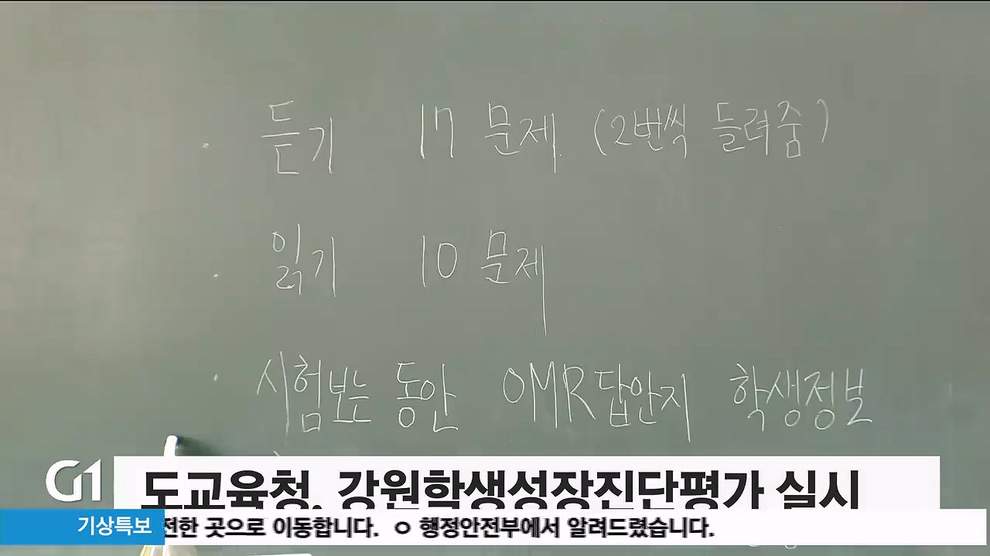 · 듣기 17 문제 (2번씩 들려줌)
· 읽기 10 문제
· 시험보는 동안 OMR답안지 학생정보
G1 도교육청, 강원학생성장진단평가 실시
기상특보 전한 곳으로 이동합니다. ㅇ 행정안전부에서 알려드렸습니다.